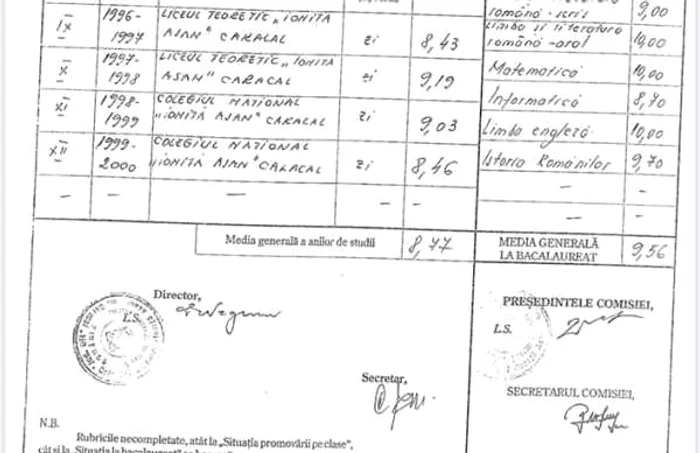 IX 1996- LICEUL TEORETIC „IONIȚĂ
1997 ASAN" CARACAL zi 8,43
X 1997- LICEUL TEORETIC „IONIȚĂ
1998 ASAN" CARACAL zi 9,19
XI 1998- COLEGIUL NAȚIONAL
1999 „IONIȚĂ ASAN" CARACAL zi 9,03
XII 1999- COLEGIUL NAȚIONAL
2000 „IONIȚĂ ASAN" CARACAL zi 8,46
— — — — —
Media generală a anilor de studii 8,77
română - scris 9,00
Limba și literatura
română - oral 10,00
Matematică 10,00
Informatică 8,70
Limba engleză 10,00
Istoria Românilor 9,70
— —
— —
MEDIA GENERALĂ
LA BACALAUREAT 9,56
Director,
L.S.
Secretar,
PREȘEDINTELE COMISIEI,
L.S.
SECRETARUL COMISIEI,
N.B.
Rubricile necompletate, atât la „Situația promovării pe clase",
cât și la „Situația la bacalaureat"